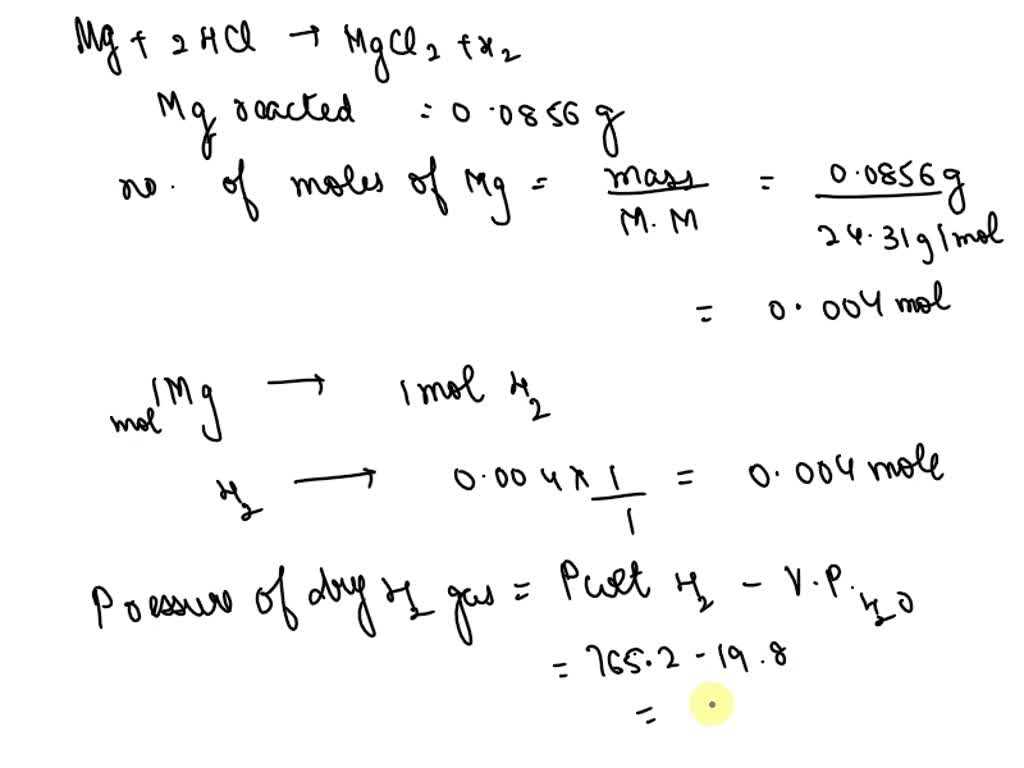 Mg + 2 HCl → MgCl2 + H2
Mg reacted = 0.0856 g
no. of moles of Mg = mass / M.M = 0.0856 g / 24.31 g/mol
= 0.004 mol
1 mol Mg → 1 mol H2
H2 → 0.004 × 1/1 = 0.004 mole
Pressure of dry H2 gas = Pwet H2 - V.P. H2O
= 765.2 - 19.8
=